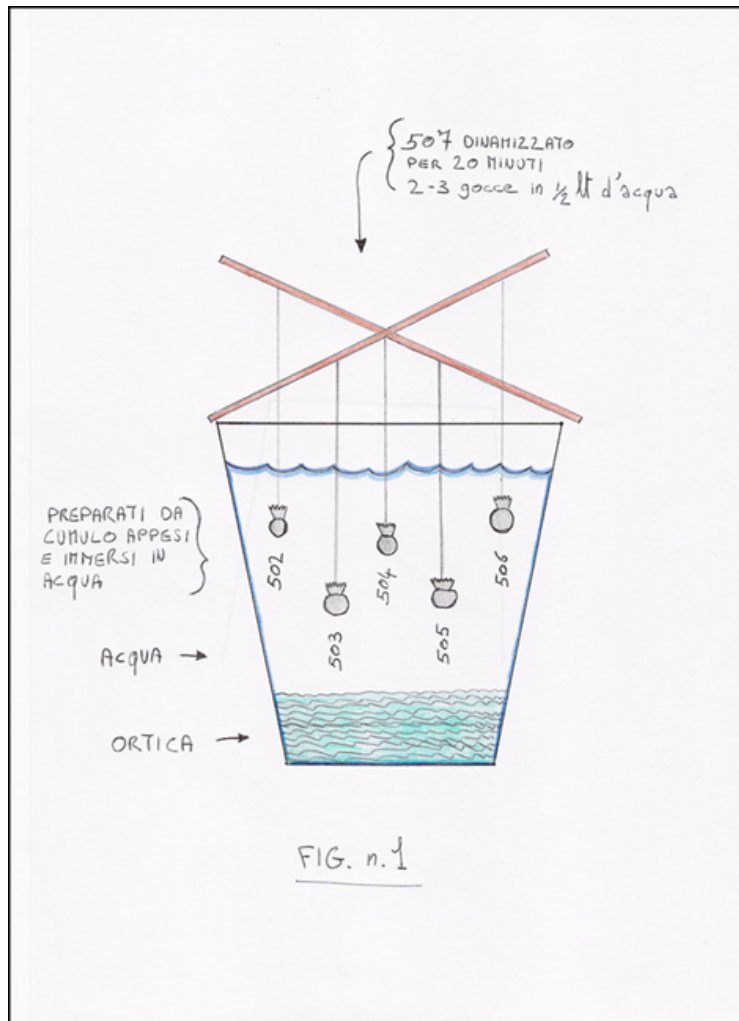 507 DINAMIZZATO
PER 20 MINUTI
2-3 gocce in ½ lt d'acqua
PREPARATI DA
CUMULO APPESI
E IMMERSI IN
ACQUA
502
503
504
505
506
ACQUA
ORTICA
FIG. n.1